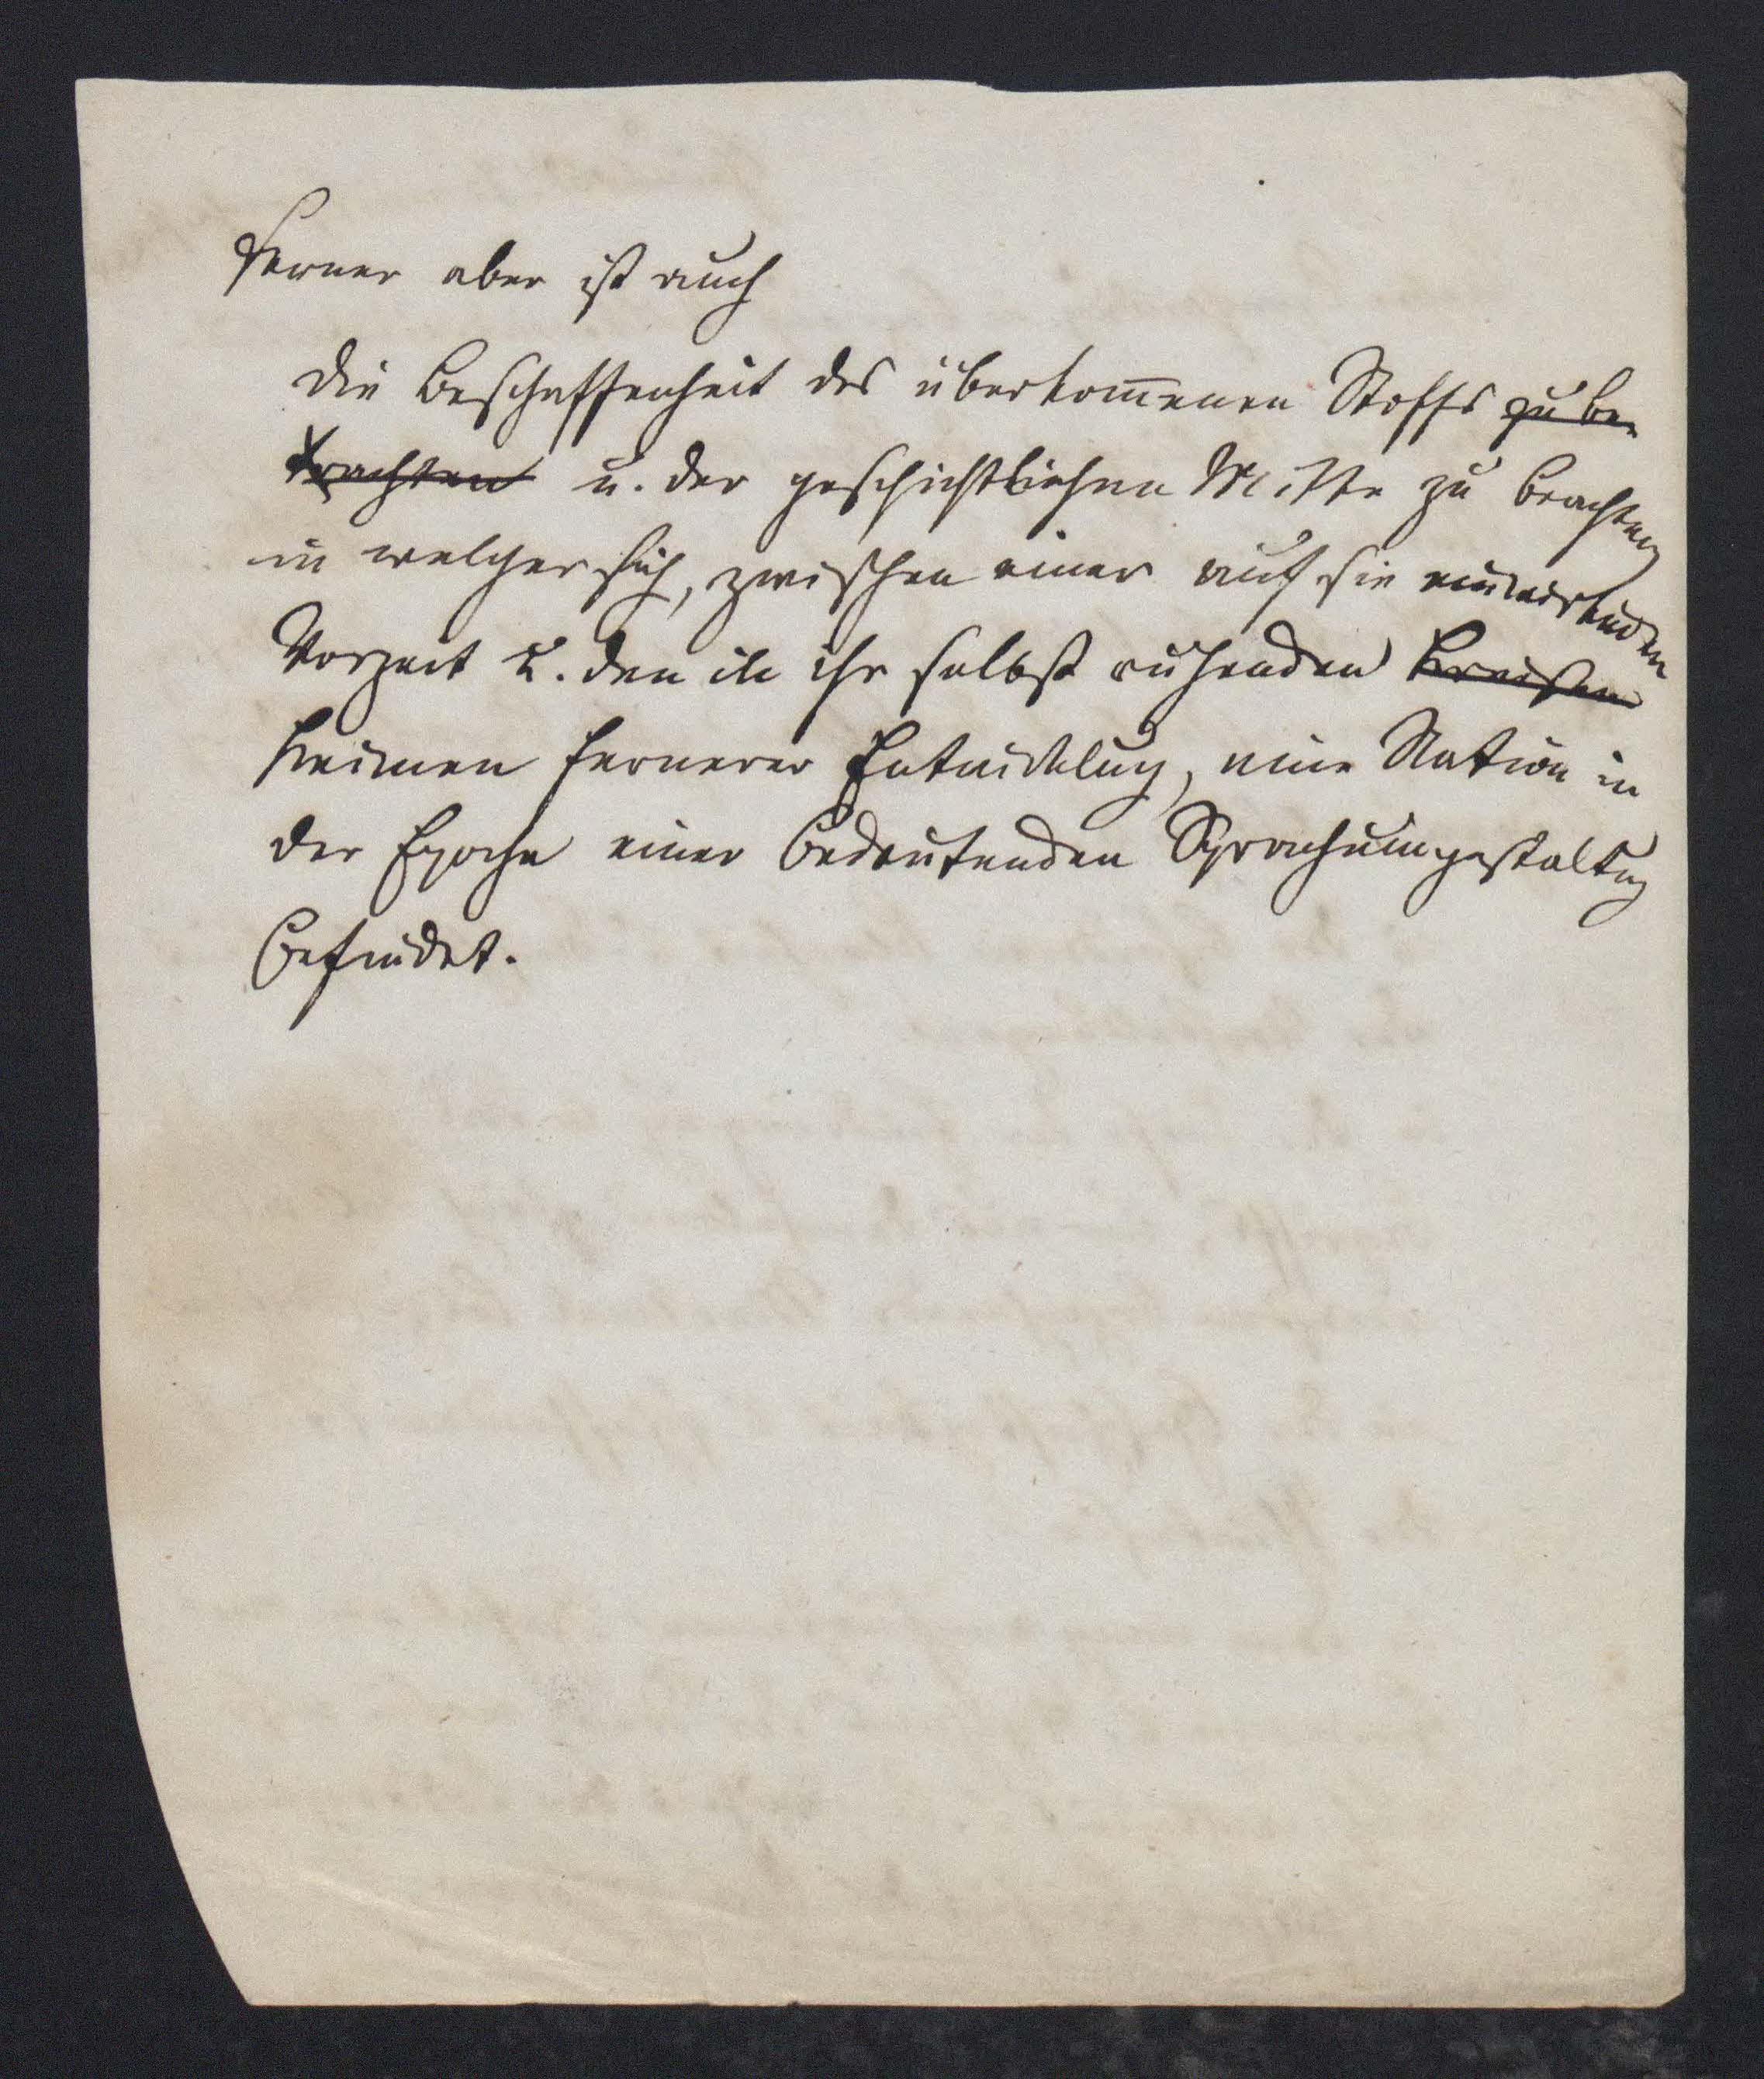 Ferner aber ist auch
die Beschaffenheit des überkom̅enen Stoffs zu be-
trachten u. der geschichtlichen Mitte zu beachten
in welcher sich, zwischen einer auf sie einwirkenden
Vorzeit u. den in ihr selbst ruhenden
Keimen fernerer Entwicklung, eine Nation in
der Epoche einer bedeutenden Sprachumgestaltung
befindet.